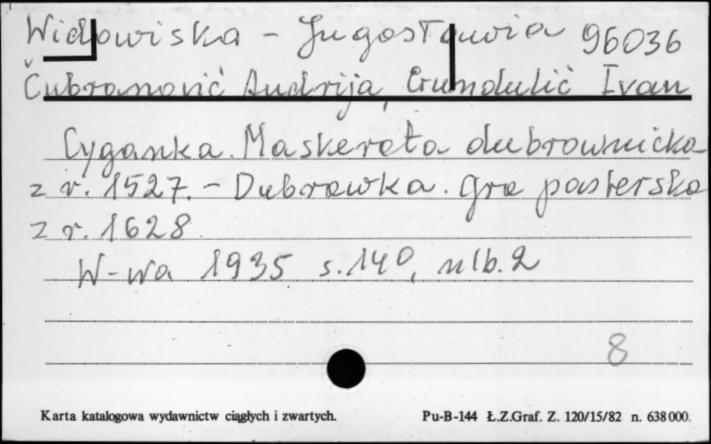 Widowiska - Jugosławia 96036
Čubranović Andrija, Gundulić Ivan
Cyganka. Maskerata dubrownicka
z r. 1527. - Dubrawka. Gra pasterska
z r. 1628
W-wa 1935 s. 140, nlb. 2
8
Karta katalogowa wydawnictw ciągłych i zwartych. Pu-B-144 Ł.Z.Graf. Z. 120/15/82 n. 638000.